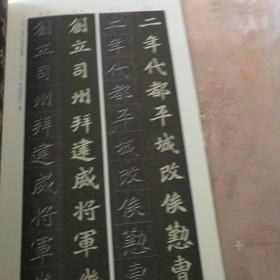 二年代都平城改侯懃曹
二年代都平城改侯懃
創立司州拜建威將軍
創立司州拜建威將軍